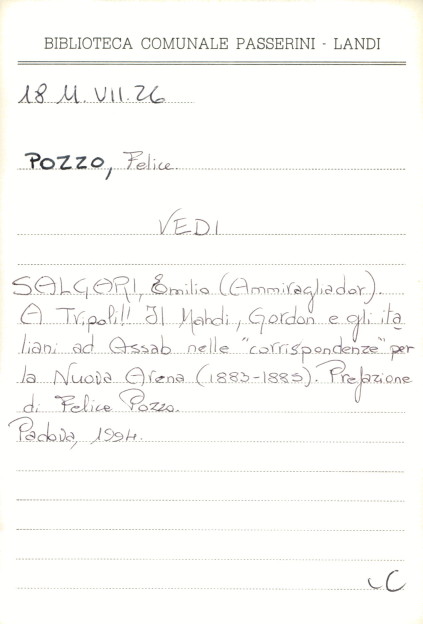 BIBLIOTECA COMUNALE PASSERINI - LANDI
18 M. VII. 26
POZZO, Felice.
VEDI
SALGARI, Emilio (Ammiragliador).
A Tripoli!! Il Mahdi, Gordon e gli ita
liani ad Assab nelle "corrispondenze" per
la Nuova Arena (1883-1885). Prefazione
di Felice Pozzo.
Padova, 1994.